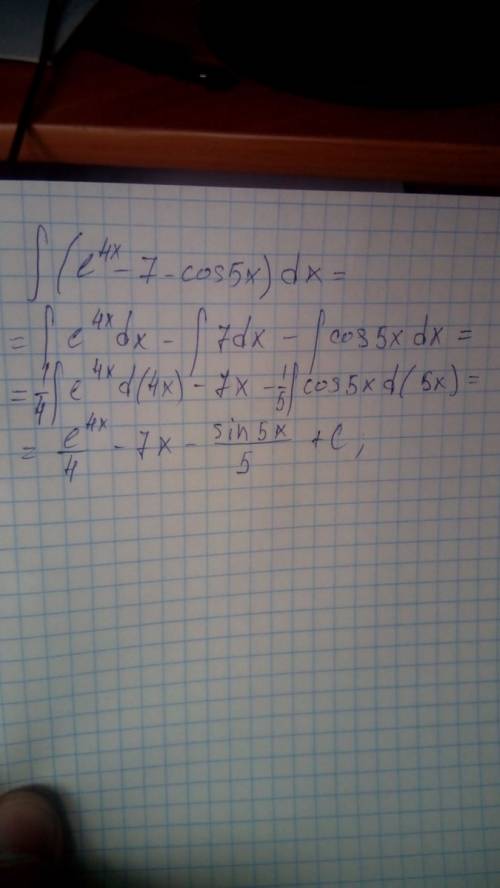 ∫(e^4x - 7 - cos5x) dx =
= ∫ e^4x dx - ∫ 7dx - ∫ cos5x dx =
= 1/4 ∫ e^4x d(4x) - 7x - 1/5 ∫ cos5x d(5x) =
= e^4x/4 - 7x - sin5x/5 + C,